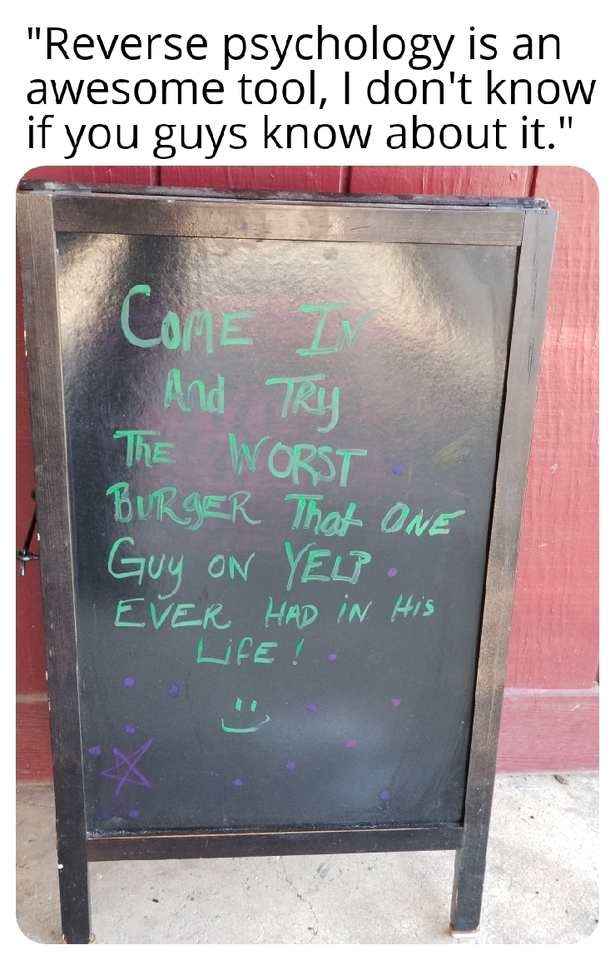 "Reverse psychology is an
awesome tool, I don't know
if you guys know about it."
COME IN
And TRY
THE WORST
BURGER That ONE
Guy ON YELP
EVER HAD iN His
LiFE !